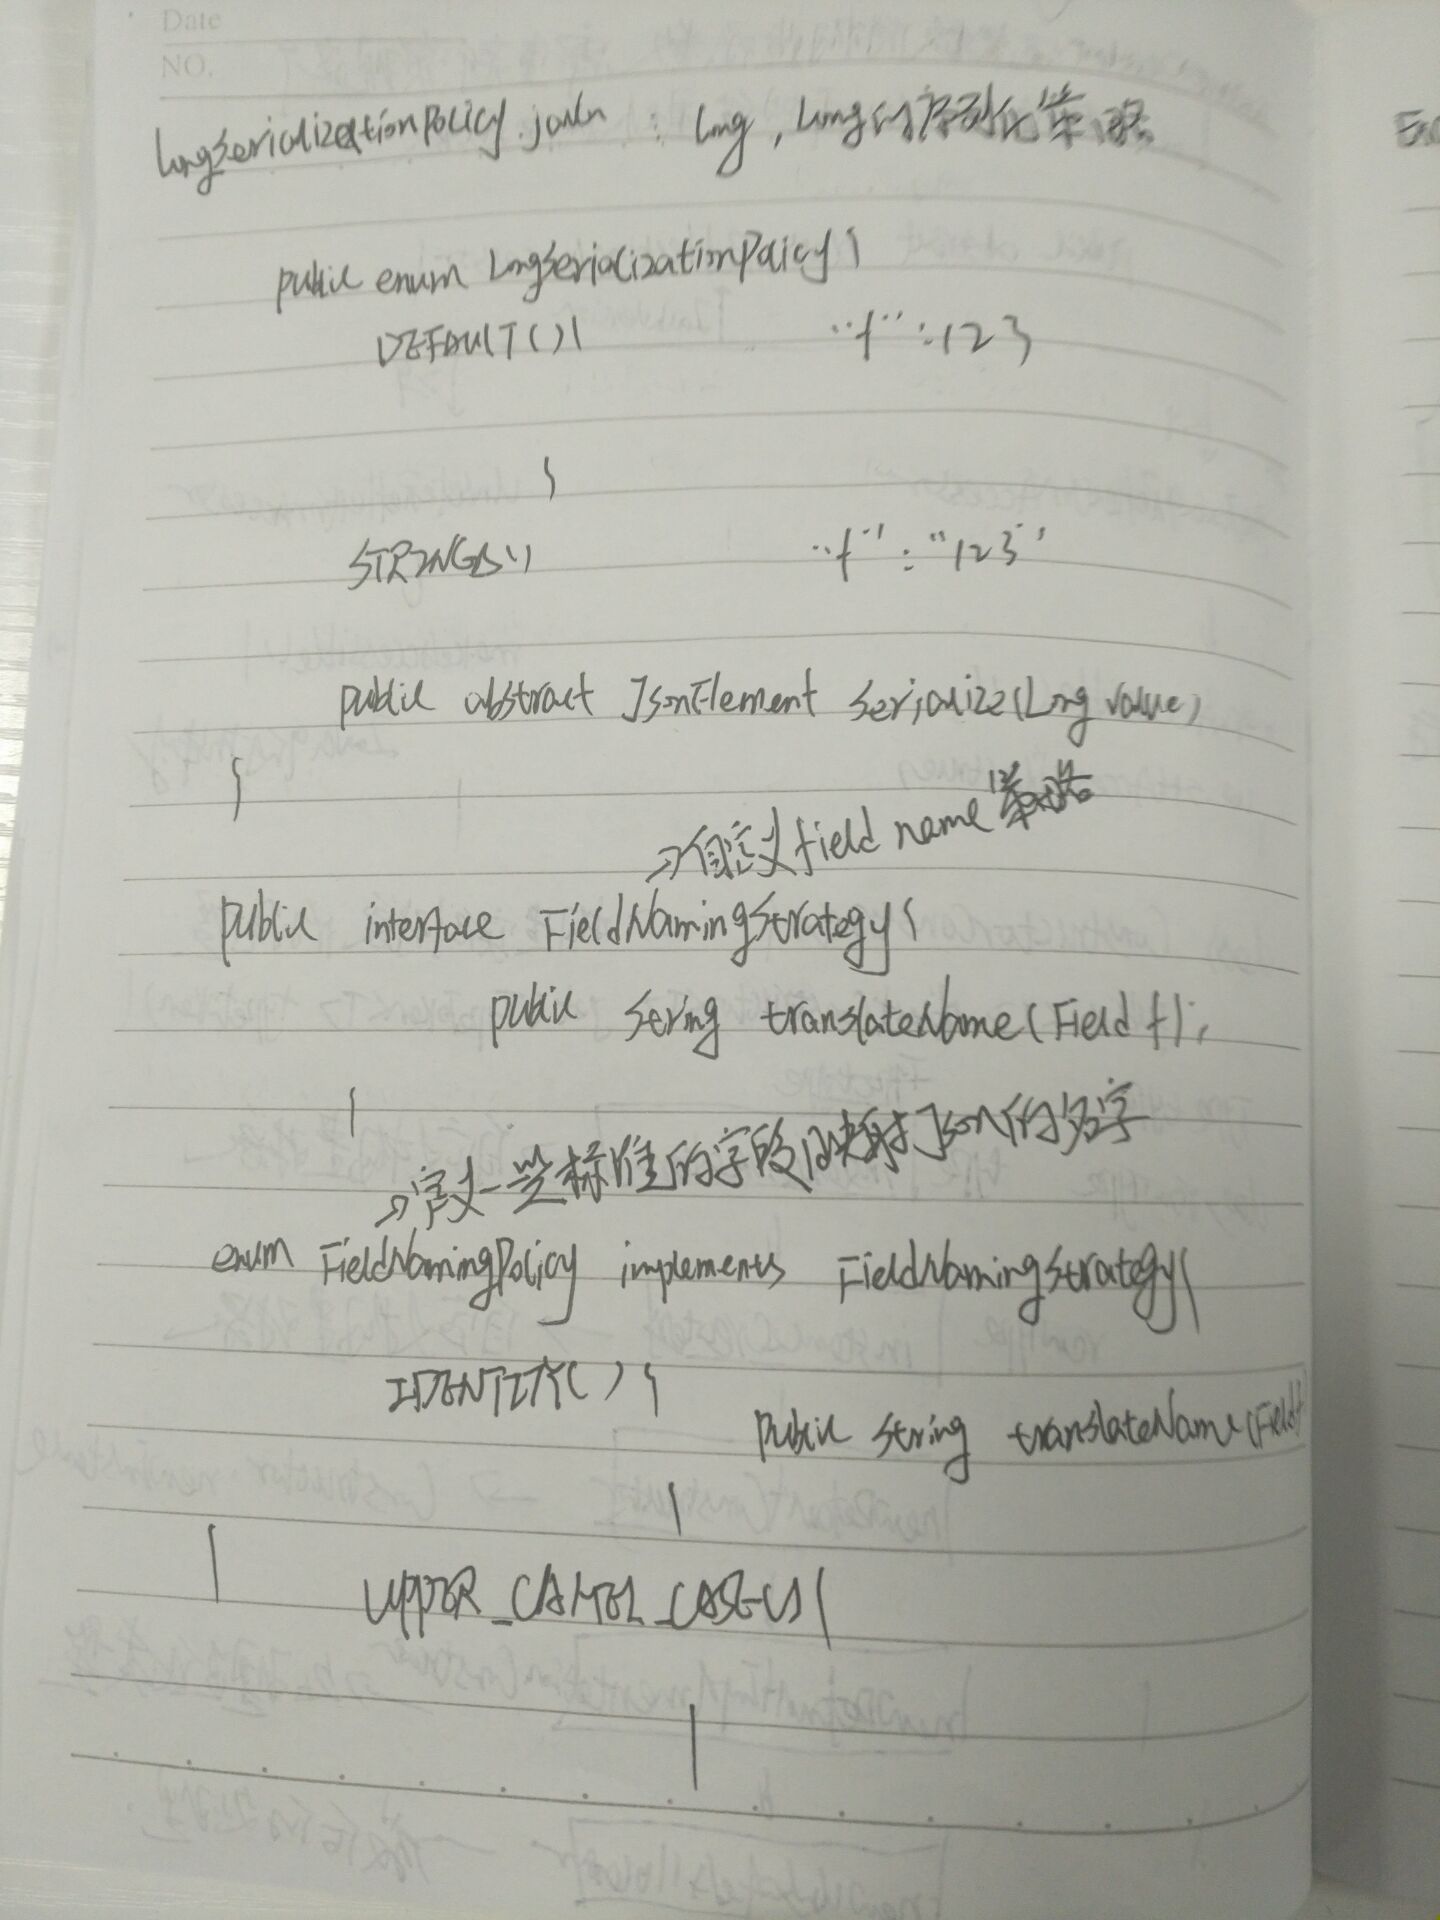 Date
NO.
LongSerializationPolicy.java : long, Long的序列化策略
public enum LongSerializationPolicy{
DEFAULT(){ "f":123
}
STRING() "f":"123"
public abstract JsonElement serialize(Long value)
}
→自定义field name策略
public interface FieldNamingStrategy{
public String translateName(Field f);
}
→定义一些标准的字段映射Json的名字
enum FieldNamingPolicy implements FieldNamingStrategy{
IDENTITY(){
public String translateName(Field f
}
}
UPPER_CAMEL_CASE(){
}